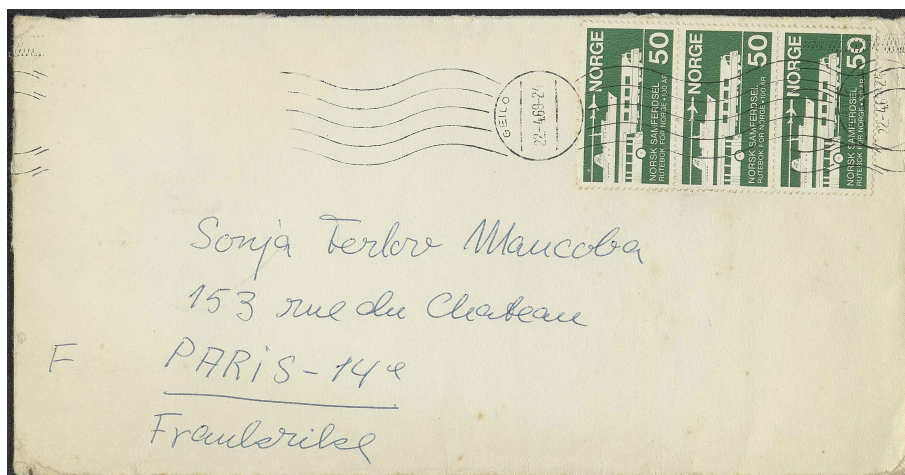 NORGE 50
NORSK SAMFERDSEL
RUTEBOK FOR NORGE • 100 ÅR
NORGE 50
NORSK SAMFERDSEL
RUTEBOK FOR NORGE • 100 ÅR
NORGE 50
NORSK SAMFERDSEL
RUTEBOK FOR NORGE • 100 ÅR
GEILO
22.-4.69-21
22.-4.69
Sonja Ferlov Mancoba
153 rue du Chateau
F
PARiS-14e
Frankrike